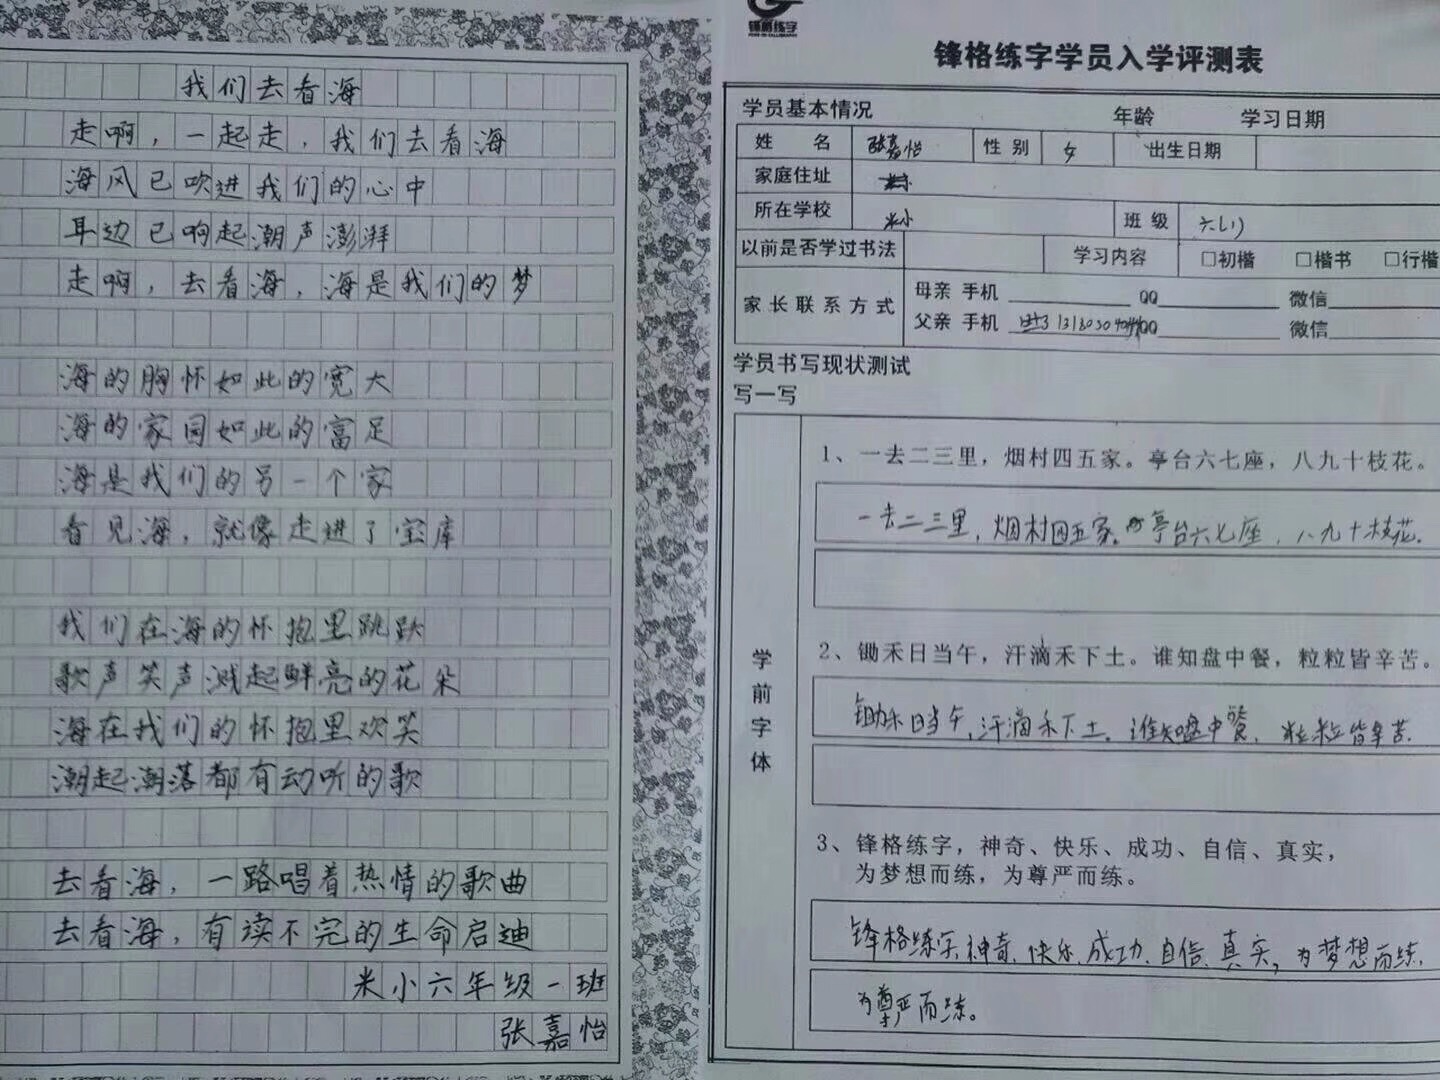 我们去看海
走啊，一起走，我们去看海
海风已吹进我们的心中
耳边已响起潮声澎湃
走啊，去看海，海是我们的梦
海的胸怀如此的宽大
海的家园如此的富足
海是我们的另一个家
看见海，就像走进了宝库
我们在海的怀抱里跳跃
歌声笑声溅起鲜亮的花朵
海在我们的怀抱里欢笑
潮起潮落都有动听的歌
去看海，一路唱着热情的歌曲
去看海，有读不完的生命启迪
米小六年级一班
张嘉怡
锋格练字
锋格练字学员入学评测表
学员基本情况 年龄 学习日期
姓名 张嘉怡 性别 女 出生日期
家庭住址
所在学校 米小 班级 六(1)
以前是否学过书法 学习内容 □初楷 □楷书 □行楷
家长联系方式
母亲 手机 QQ 微信
父亲 手机 QQ 微信
学员书写现状测试
写一写
学前字体
1、一去二三里，烟村四五家。亭台六七座，八九十枝花。
一去二三里，烟村四五家。亭台六七座，八九十枝花。
2、锄禾日当午，汗滴禾下土。谁知盘中餐，粒粒皆辛苦。
锄禾日当午，汗滴禾下土。谁知盘中餐，粒粒皆辛苦.
3、锋格练字，神奇、快乐、成功、自信、真实，
为梦想而练，为尊严而练。
锋格练字，神奇、快乐、成功、自信、真实，为梦想而练，
为尊严而练。